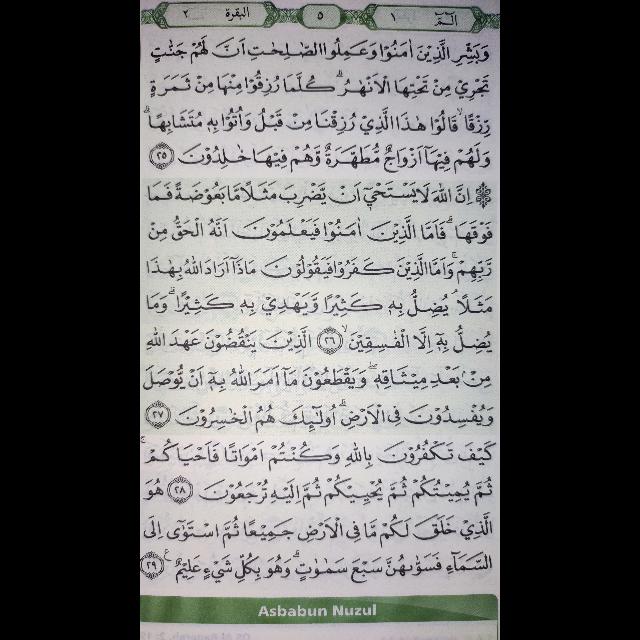 الۤمّۤ ١
٥
البقرة ٢
وَبَشِّرِ الَّذِيْنَ اٰمَنُوْا وَعَمِلُوا الصّٰلِحٰتِ اَنَّ لَهُمْ جَنّٰتٍ
تَجْرِيْ مِنْ تَحْتِهَا الْاَنْهٰرُۗ كُلَّمَا رُزِقُوْا مِنْهَا مِنْ ثَمَرَةٍ
رِّزْقًاۙ قَالُوْا هٰذَا الَّذِيْ رُزِقْنَا مِنْ قَبْلُ وَاُتُوْا بِهٖ مُتَشَابِهًاۗ
وَلَهُمْ فِيْهَآ اَزْوَاجٌ مُّطَهَّرَةٌ وَّهُمْ فِيْهَا خٰلِدُوْنَ ٢٥
۞ اِنَّ اللّٰهَ لَا يَسْتَحْيٖٓ اَنْ يَّضْرِبَ مَثَلًا مَّا بَعُوْضَةً فَمَا
فَوْقَهَاۗ فَاَمَّا الَّذِيْنَ اٰمَنُوْا فَيَعْلَمُوْنَ اَنَّهُ الْحَقُّ مِنْ
رَّبِّهِمْۚ وَاَمَّا الَّذِيْنَ كَفَرُوْا فَيَقُوْلُوْنَ مَاذَآ اَرَادَ اللّٰهُ بِهٰذَا
مَثَلًاۘ يُضِلُّ بِهٖ كَثِيْرًا وَّيَهْدِيْ بِهٖ كَثِيْرًاۗ وَمَا
يُضِلُّ بِهٖٓ اِلَّا الْفٰسِقِيْنَۙ ٢٦ الَّذِيْنَ يَنْقُضُوْنَ عَهْدَ اللّٰهِ
مِنْۢ بَعْدِ مِيْثَاقِهٖۖ وَيَقْطَعُوْنَ مَآ اَمَرَ اللّٰهُ بِهٖٓ اَنْ يُّوْصَلَ
وَيُفْسِدُوْنَ فِى الْاَرْضِۗ اُولٰۤىِٕكَ هُمُ الْخٰسِرُوْنَ ٢٧
كَيْفَ تَكْفُرُوْنَ بِاللّٰهِ وَكُنْتُمْ اَمْوَاتًا فَاَحْيَاكُمْۚ
ثُمَّ يُمِيْتُكُمْ ثُمَّ يُحْيِيْكُمْ ثُمَّ اِلَيْهِ تُرْجَعُوْنَ ٢٨ هُوَ
الَّذِيْ خَلَقَ لَكُمْ مَّا فِى الْاَرْضِ جَمِيْعًا ثُمَّ اسْتَوٰٓى اِلَى
السَّمَاۤءِ فَسَوّٰىهُنَّ سَبْعَ سَمٰوٰتٍۗ وَهُوَ بِكُلِّ شَيْءٍ عَلِيْمٌ ࣖ ٢٩
Asbabun Nuzul